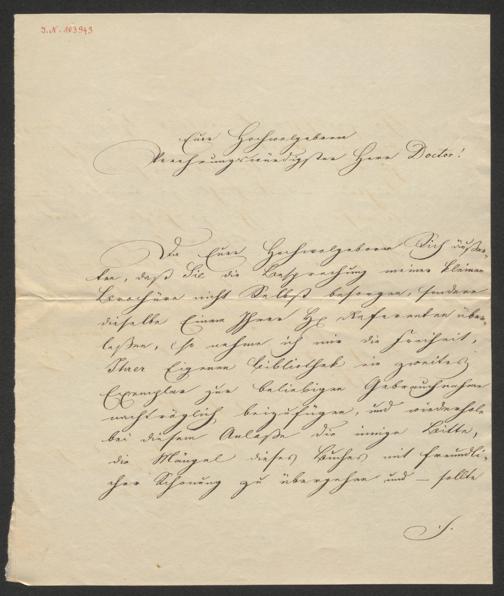 J.N. 103949
Eure Hochwolgeborn
Verehrungswürdigster Herr Doctor!
Da Eure Hochwolgeborn Sich äußer-
ten, daß Sie die Besprechung meiner kleinen
Brochüre nicht Selbst besorgen, sondern
dieselbe Einem Ihrer Hℊ Referenten über-
laßen, so nehme ich mir die Freiheit,
Ihrer Eigenen Bibliothek ein zweites
Exemplar zur beliebigen Gebrauchnahme
nachträglich beizufügen, und wiederhole
bei diesem Anlaße die innige Bitte,
die Mängel dieses Buches mit freundli-
cher Schonung zu übergehen und — sollte